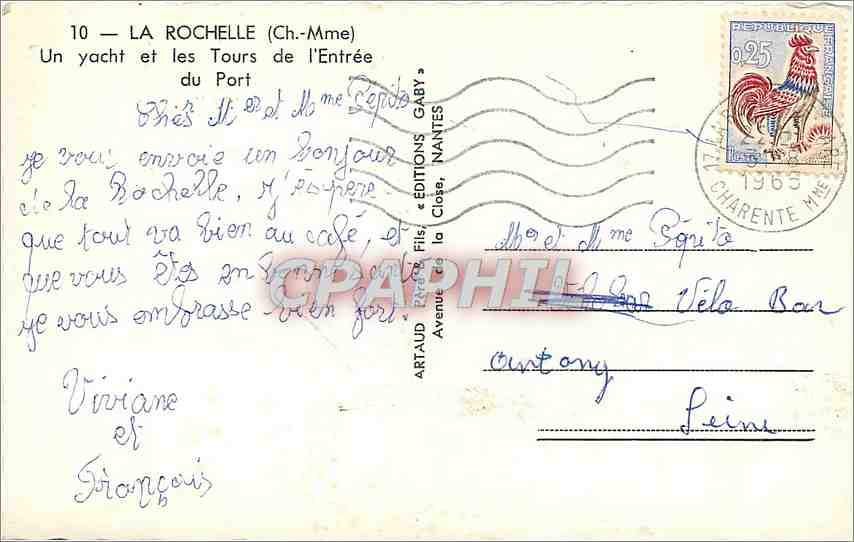 10 — LA ROCHELLE (Ch.-Mme)
Un yacht et les Tours de l'Entrée
du Port
Chers Mer et Mme Pépito
je vous envoie un bonjour
de la Rochelle, j'éspère
que tout va bien au café, et
que vous êtes en bonne santé
je vous embrasse bien fort.
Viviane
et
François
ARTAUD Père & Fils, « EDITIONS GABY »
Avenue de la Close, NANTES
REPUBLIQUE FRANÇAISE
0,25
17 LA
1965
CHARENTE Mme
CPAPHIL
Mer et Mme Pépito
Vélo Bar
Antony
Seine